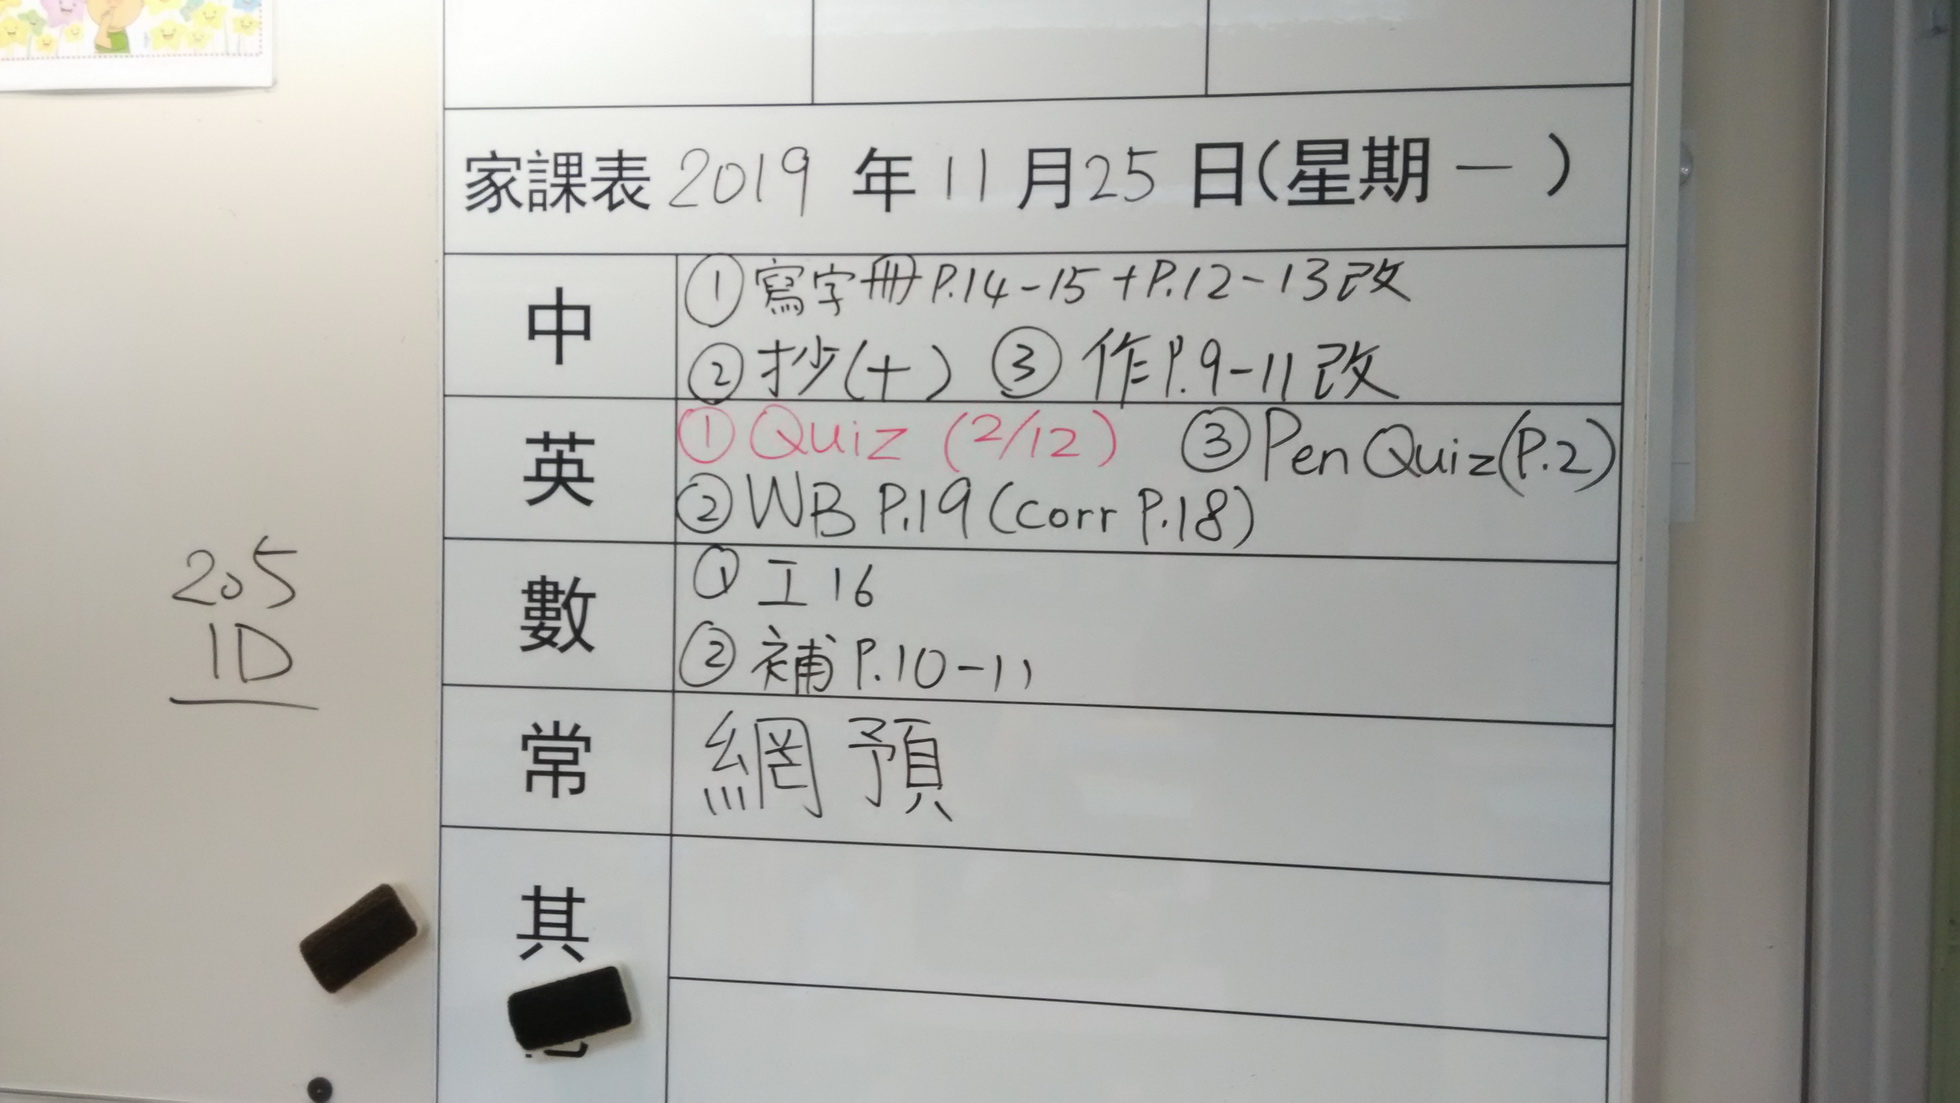 家課表 2019 年 11 月 25 日(星期一)
中
①寫字冊P.14-15+P.12-13改
②抄(十) ③作P.9-11改
英
①Quiz (2/12) ③Pen Quiz(P.2)
②WB P.19(corr P.18)
數
①工16
②補P.10-11
常
網預
其
205
1D